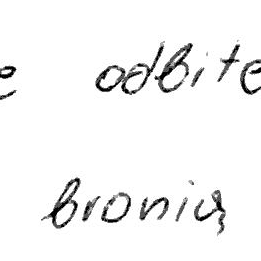 e odbite
bronią